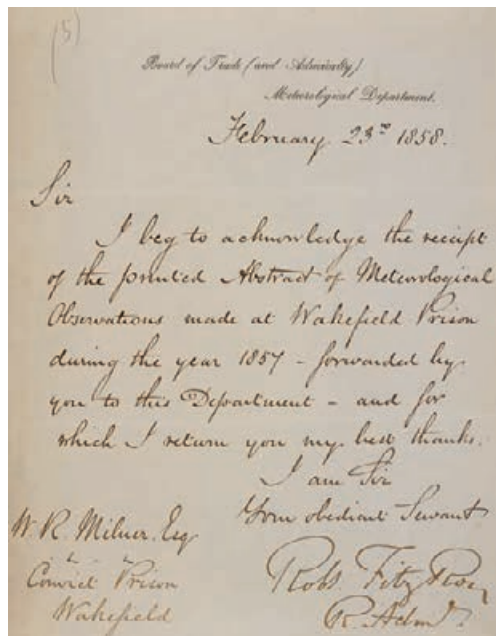 (5)
Board of Trade (and Admiralty)
Meteorological Department.
February 23rd 1858.
Sir
I beg to acknowledge the receipt
of the printed Abstract of Meteorological
Observations made at Wakefield Prison
during the year 1857 - forwarded by
you to this Department - and for
which I return you my best thanks.
I am Sir
Your obedient Servant
W. R. Milner. Esq
Convict Prison
Wakefield
Robt. FitzRoy
R. Adml.